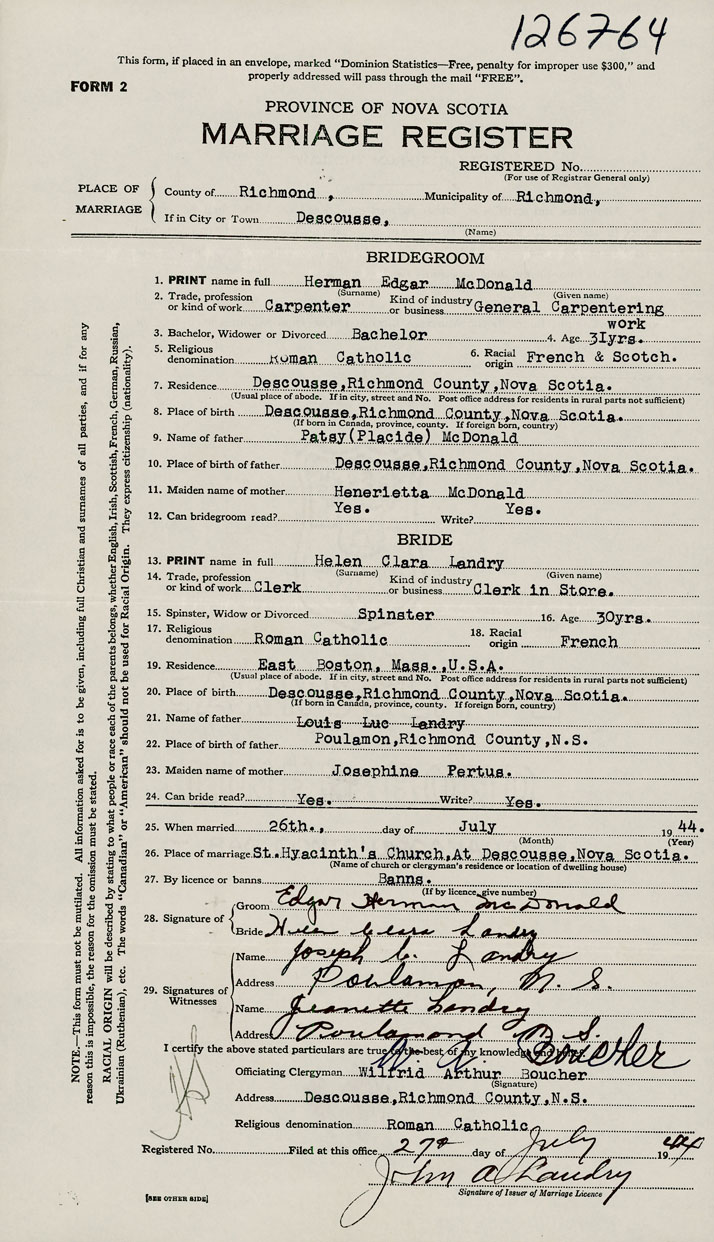 126764
This form, if placed in an envelope, marked "Dominion Statistics—Free, penalty for improper use $300," and
properly addressed will pass through the mail "FREE".
FORM 2
PROVINCE OF NOVA SCOTIA
MARRIAGE REGISTER
REGISTERED No.
(For use of Registrar General only)
PLACE OF MARRIAGE
County of Richmond, Municipality of Richmond,
If in City or Town Descousse,
(Name)
BRIDEGROOM
1. PRINT name in full Herman Edgar McDonald
(Surname) (Given name)
2. Trade, profession or kind of work Carpenter Kind of industry or business General Carpentering
work
3. Bachelor, Widower or Divorced Bachelor 4. Age 3Iyrs.
5. Religious denomination Roman Catholic 6. Racial origin French & Scotch.
7. Residence Descousse,Richmond County,Nova Scotia.
(Usual place of abode. If in city, street and No. Post office address for residents in rural parts not sufficient)
8. Place of birth Descousse,Richmond County,Nova Scotia.
(If born in Canada, province, county. If foreign born, country)
9. Name of father Patsy(Placide) McDonald
10. Place of birth of father Descousse,Richmond County,Nova Scotia.
11. Maiden name of mother Henerietta McDonald
12. Can bridegroom read? Yes. Write? Yes.
BRIDE
13. PRINT name in full Helen Clara Landry
(Surname) (Given name)
14. Trade, profession or kind of work Clerk Kind of industry or business Clerk in Store.
15. Spinster, Widow or Divorced Spinster 16. Age 30yrs.
17. Religious denomination Roman Catholic 18. Racial origin French
19. Residence East Boston, Mass.,U.S.A.
(Usual place of abode. If in city, street and No. Post office address for residents in rural parts not sufficient)
20. Place of birth Descousse,Richmond County,Nova Scotia.
(If born in Canada, province, county. If foreign born, country)
21. Name of father Louis Luc Landry
22. Place of birth of father Poulamon,Richmond County,N.S.
23. Maiden name of mother Josephine Pertus.
24. Can bride read? Yes. Write? Yes.
25. When married 26th., day of July 1944.
(Month) (Year)
26. Place of marriage St.Hyacinth's Church,At Descousse,Nova Scotia.
(Name of church or clergyman's residence or location of dwelling house)
27. By licence or banns Banns.
(If by licence, give number)
28. Signature of
Groom Edgar Herman McDonald
Bride Helen Clara Landry
29. Signatures of Witnesses
Name Joseph C. Landry
Address Poulamon, N. S.
Name Jeanette Landry
Address Poulamond N S.
I certify the above stated particulars are true to the best of my knowledge and belief.
W. A. Boucher
Officiating Clergyman Wilfrid Arthur Boucher
(Signature)
Address Descousse,Richmond County,N.S.
Religious denomination Roman Catholic
Registered No. Filed at this office 27th day of July 1944
John A Landry
Signature of Issuer of Marriage Licence
[SEE OTHER SIDE]
NOTE.—This form must not be mutilated. All information asked for is to be given, including full Christian and surnames of all parties, and if for any
reason this is impossible, the reason for the omission must be stated.
RACIAL ORIGIN will be described by stating to what people or race each of the parents belongs, whether English, Irish, Scottish, French, German, Russian,
Ukrainian (Ruthenian), etc. The words "Canadian" or "American" should not be used for Racial Origin. They express citizenship (nationality).